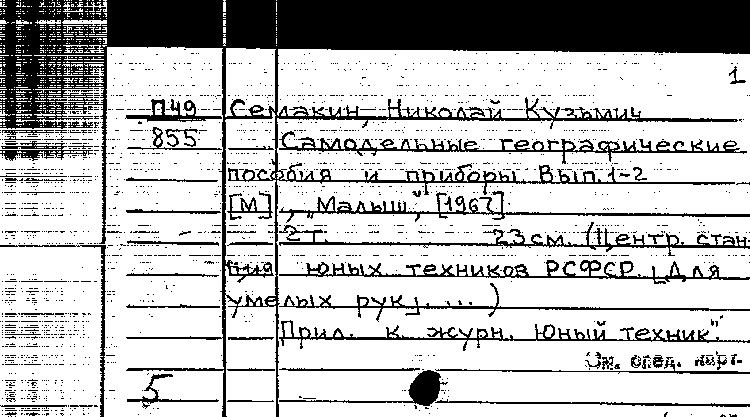 1
П49 Семакин, Николай Кузьмич
855 Самодельные географические
пособия и приборы Вып. 1-2
[М], „Малыш", [1967]
2 т. 23 см. (Центр. стан-
ция юных техников РСФСР. [Для
умелых рук]. ...)
Прил. к журн. Юный техник".
См. след. карт.
5